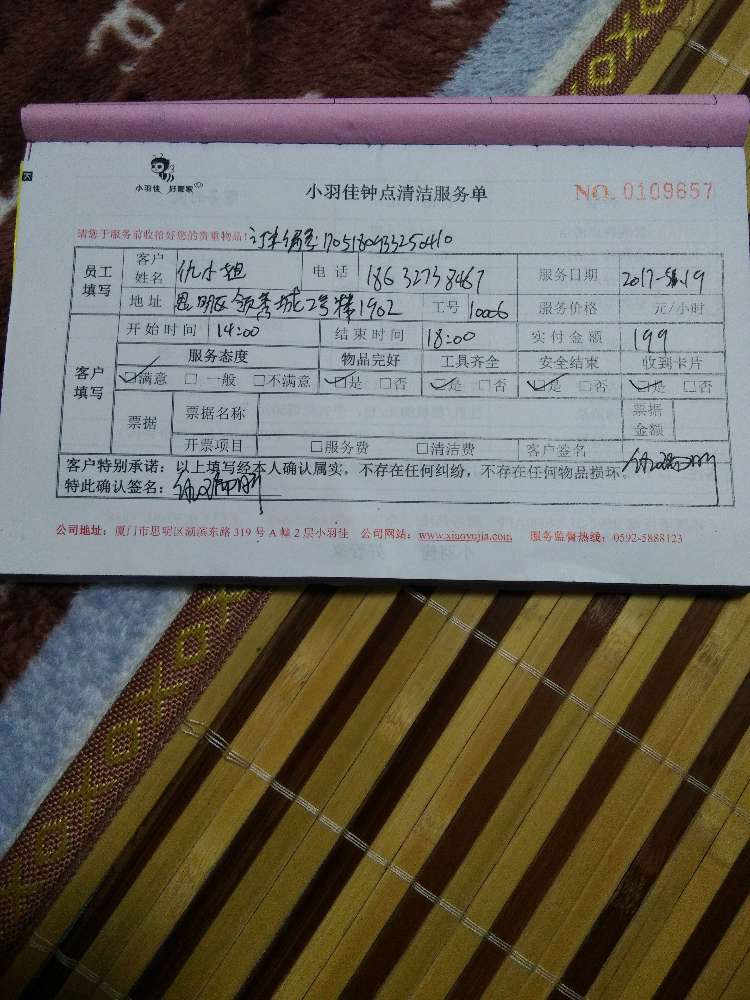 小羽佳 好管家
小羽佳钟点清洁服务单
NO. 0109657
请您于服务前收拾好您的贵重物品! 订单编号:1705180433250410
员工填写 客户姓名 仇小姐 电话 18632738467 服务日期 2017-5.19
地址 思明区领秀城2号楼1902 工号 10006 服务价格 元/小时
客户填写 开始时间 14:00 结束时间 18:00 实付金额 199
服务态度 物品完好 工具齐全 安全结束 收到卡片
☑满意 □一般 □不满意 ☑是 □否 ☑是 □否 ☑是 □否 ☑是 □否
票据 票据名称 票据金额
开票项目 □服务费 □清洁费 客户签名
客户特别承诺：以上填写经本人确认属实，不存在任何纠纷，不存在任何物品损坏。
特此确认签名：
公司地址：厦门市思明区湖滨东路319号A幢2层小羽佳 公司网站：www.xiaoyujia.com 服务监督热线：0592-5888123